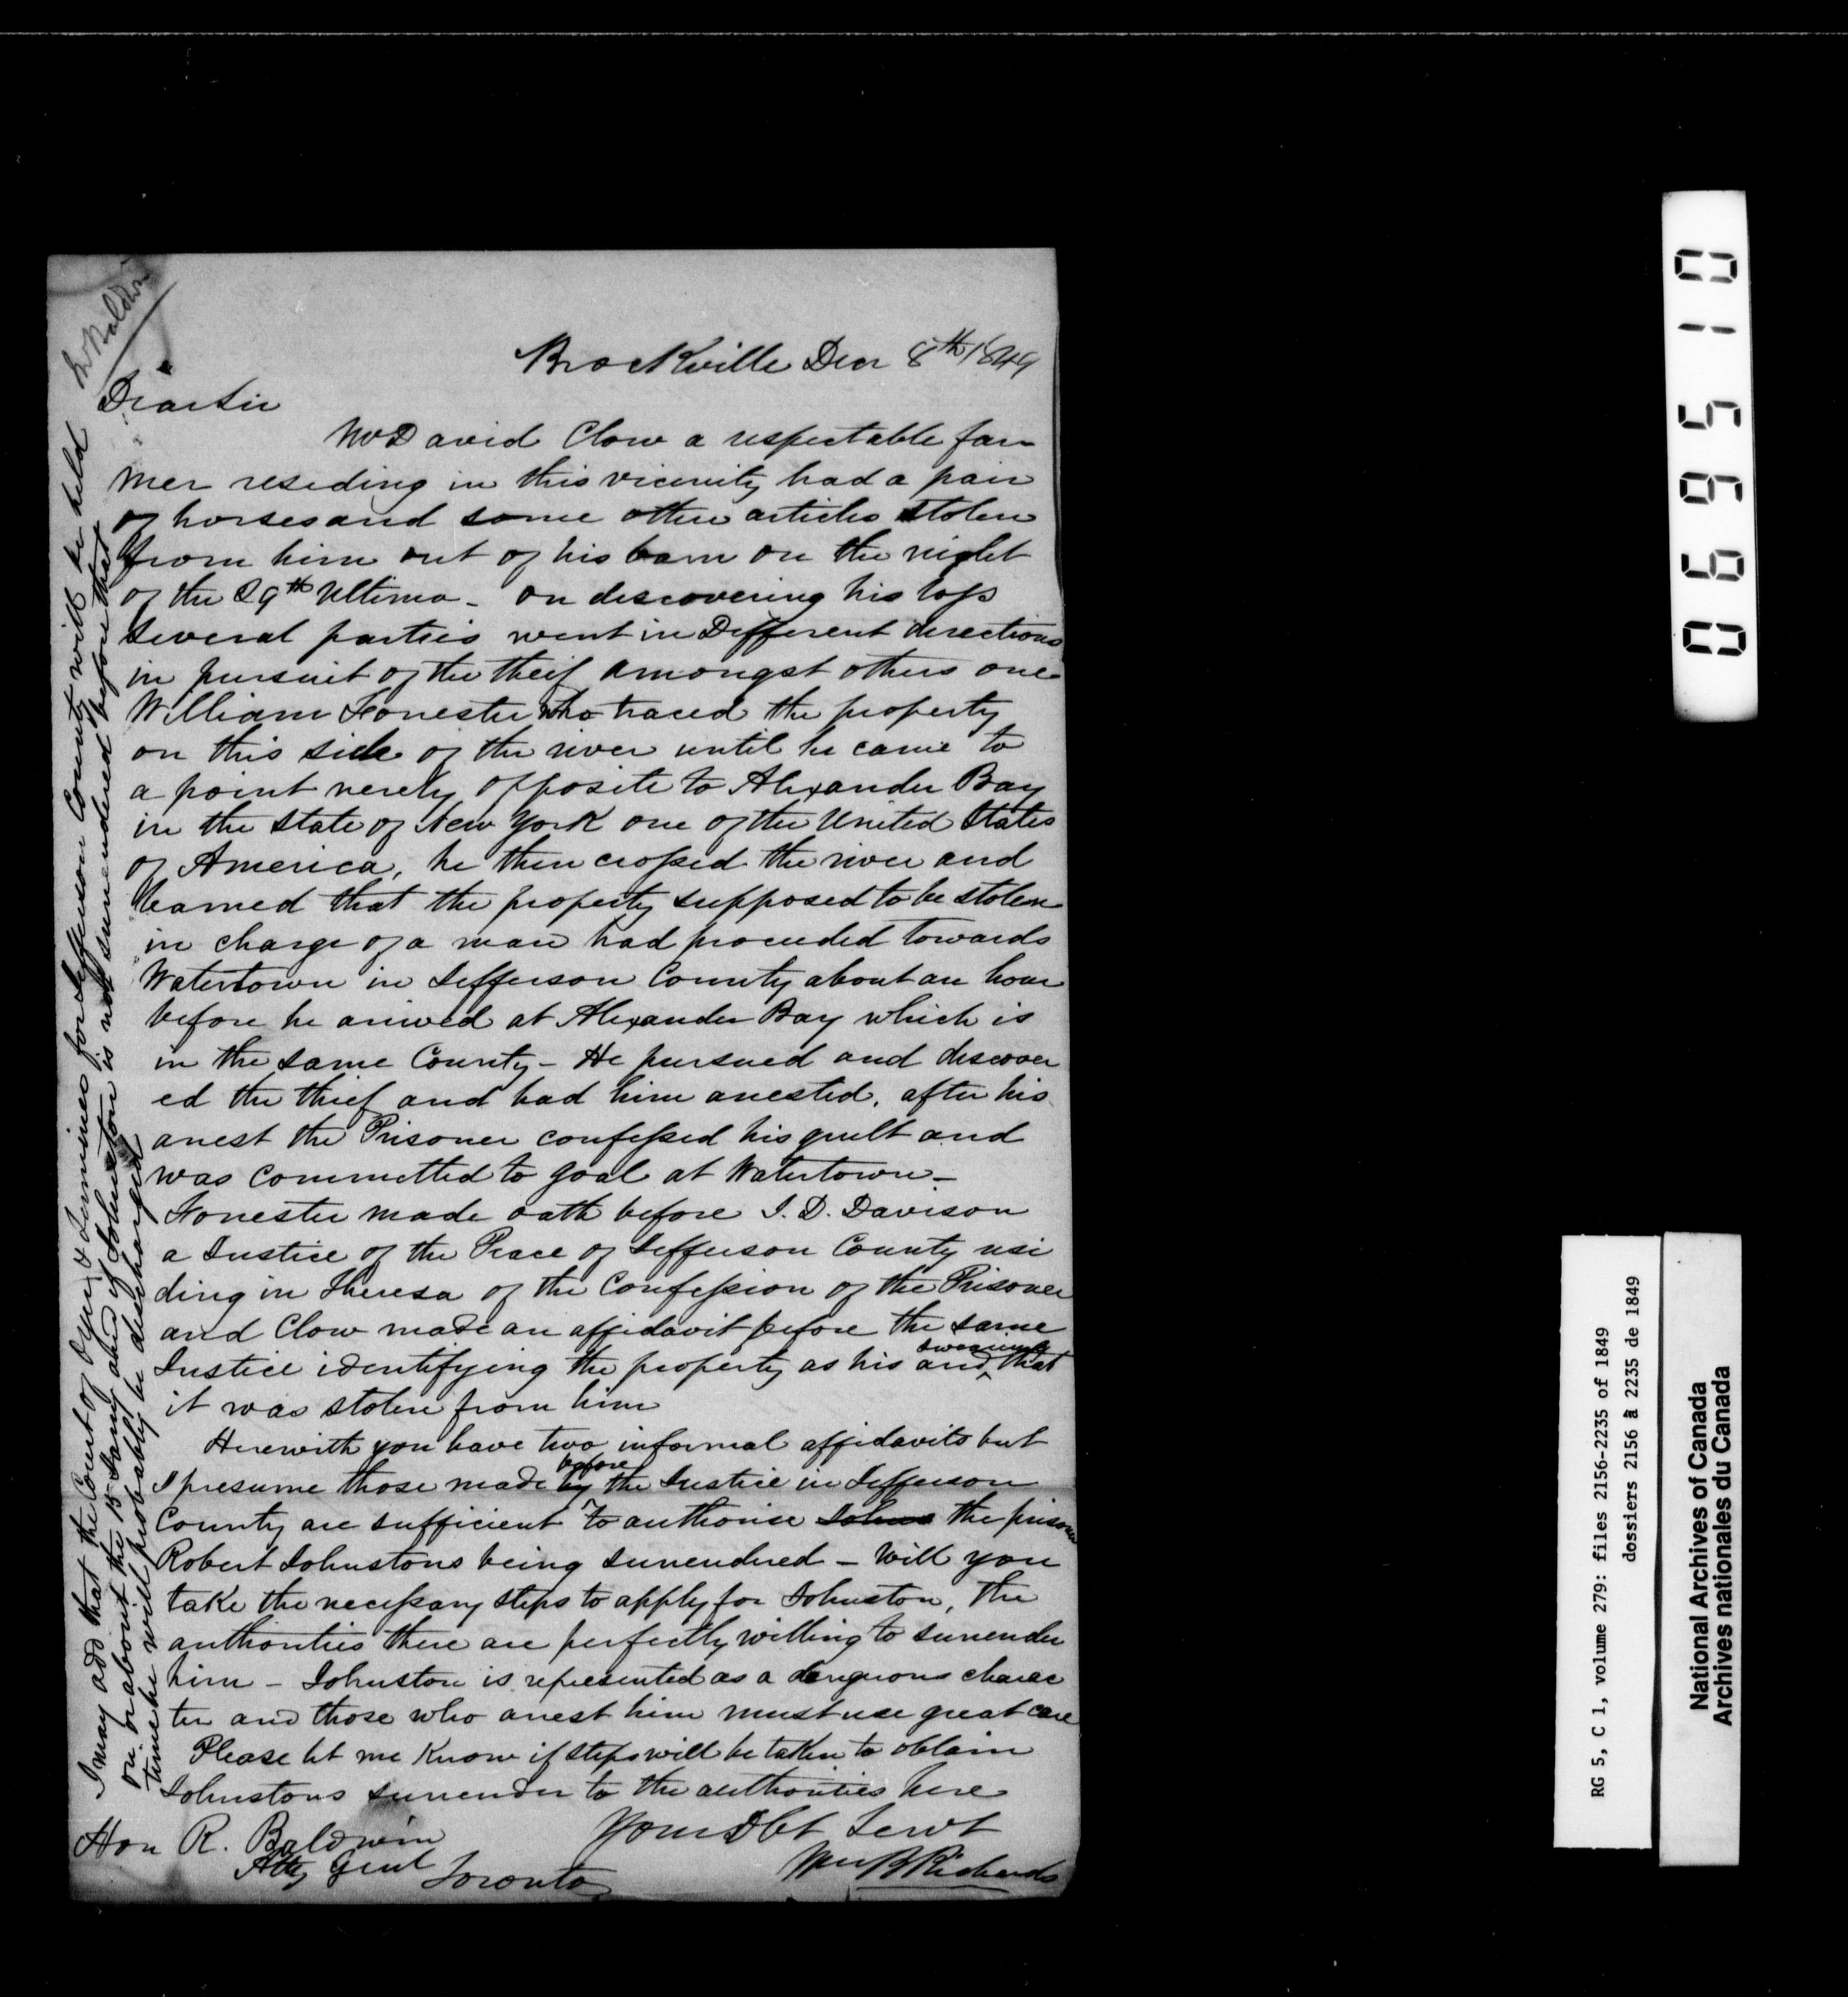 Mr Baldwin
Brockville Decr 8th 1849
Dear Sir
Mr David Clow a respectable far
mer residing in this vicinity had a pair
of horses and some other articles stolen
from him out of his barn on the night
of the 29th Ultimo - on discovering his loss
several parties went in Different directions
in pursuit of the theif amongst others one
William Forrester who traced the property
on this side of the river until he came to
a point nerely opposite to Alexander Bay
in the State of New York one of the United States
of America, he then crossed the river and
learned that the property supposed to be stolen
in charge of a man had proceeded towards
Watertown in Jefferson County about an hour
before he arrived at Alexander Bay which is
in the same County - He pursued and discover
ed the thief and had him arrested, after his
arrest the Prisoner confessed his guilt and
was committed to goal at Watertown -
Forrester made oath before J. D. Davison
a Justice of the Peace of Jefferson County resi
ding in Theresa of the Confession of the Prisoner
and Clow made an affidavit before the same
Justice identifying the property as his and swearing that
it was stolen from him
Herewith you have two informal affidavits but
I presume those made by before the Justice in Jefferson
County are sufficient to authorise Johns the prisoner
Robert Johnstons being surrendered - Will you
take the necessary steps to apply for Johnston, The
authorities there are perfectly willing to surrender
him - Johnston is represented as a dangerous charac
ter and those who arrest him must use great care
Please let me Know if steps will be taken to obtain
Johnstons surrender to the authorities here
Your Obt Servt
Wm B Richards
Hon R. Baldwin
Atty Genl
Toronto
I may add that the Court of Oyer & Terminer for Jefferson County will be held
on or about the 15 Jany and if Johnston is not surrendered before that
time he will probably be discharged
0 6 9 5 1 0
RG 5, C 1, volume 279: files 2156-2235 of 1849
dossiers 2156 à 2235 de 1849
National Archives of Canada
Archives nationales du Canada